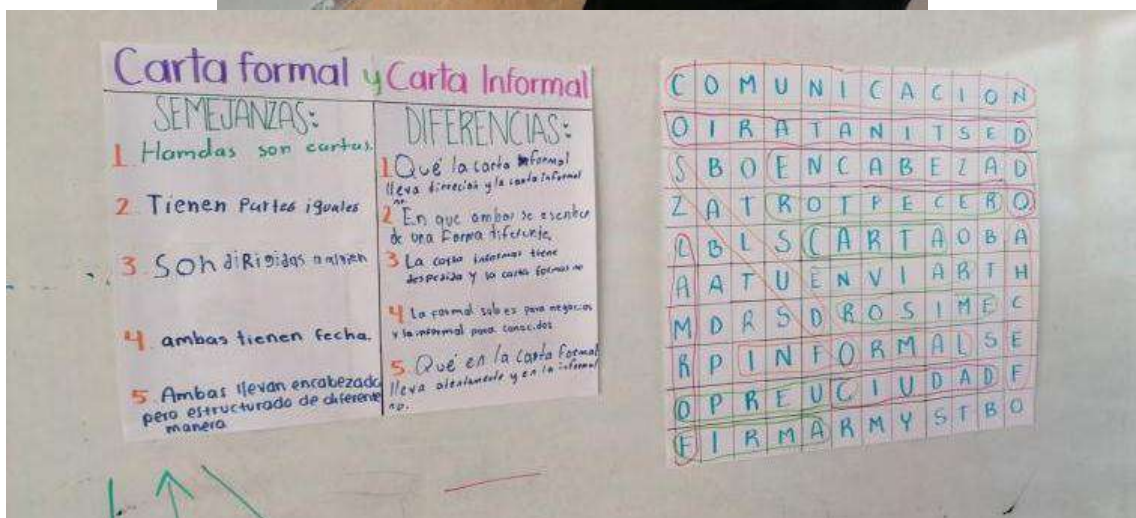 Carta formal y Carta Informal
SEMEJANZAS:
1 Hamdas son cartas.
2. Tienen Partes iguales
3. Son diRigidas a alguien
4. ambas tienen fecha.
5. Ambas llevan encabezado
pero estructurado de diferente
manera
DIFERENCIAS:
1. Qué la carta formal
lleva direccion y la carta informal
no.
2. En que ambas se escriben
de una Forma diferente,
3 La carta informal tiene
despedida y la carta formal no
4 La formal para negocios
y la informal para conocidos
5. Qué en la Carta Formal
lleva atentamente y en la informal
no.
C O M U N I C A C I O N
O I R A T A N I T S E D
S B O E N C A B E Z A D
Z A T R O T P E C E R O
L B L S C A R T A O B A
A A T U E N V I A R T H
M D R S D R O S I M E C
R P I N F O R M A L S E
O P R E U C I U D A D F
F I R M A R M Y S T B O